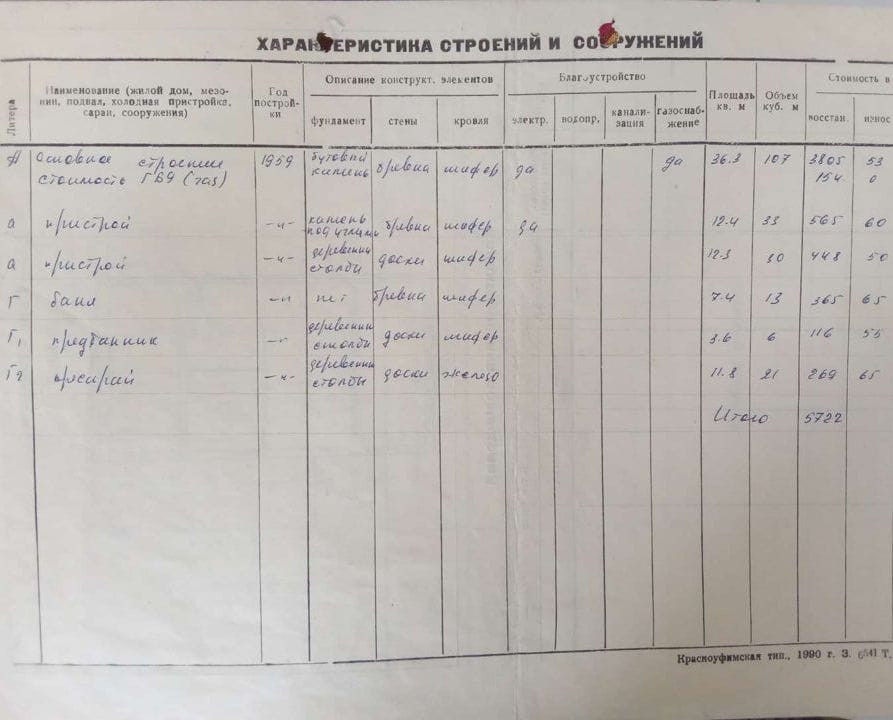 ХАРАКТЕРИСТИКА СТРОЕНИЙ И СООРУЖЕНИЙ
Литера
Наименование (жилой дом, мезонин, подвал, холодная пристройка, сараи, сооружения)
Год постройки
Описание конструкт. элементов
фундамент стены кровля
Благоустройство
электр. водопр. канализация газоснабжение
Площадь кв. м
Объем куб. м
Стоимость в
восстан. износ
А Основное строение 1959 бутовый камень бревна шифер да да 36.3 107 3805 53
стоимость ГВ9 (газ) 154 0
а пристрой -"- камень под углами бревна шифер да 12.4 33 565 60
а пристрой -"- деревянн столбы доски шифер 12.3 30 448 50
Г баня -"- нет бревна шифер 7.4 13 365 65
Г1 предбанник -"- деревянн столбы доски шифер 3.6 6 116 55
Г2 деревянн столбы доски железо 11.8 21 269 65
Итого 5722
Красноуфимская тип., 1990 г. З. Т.